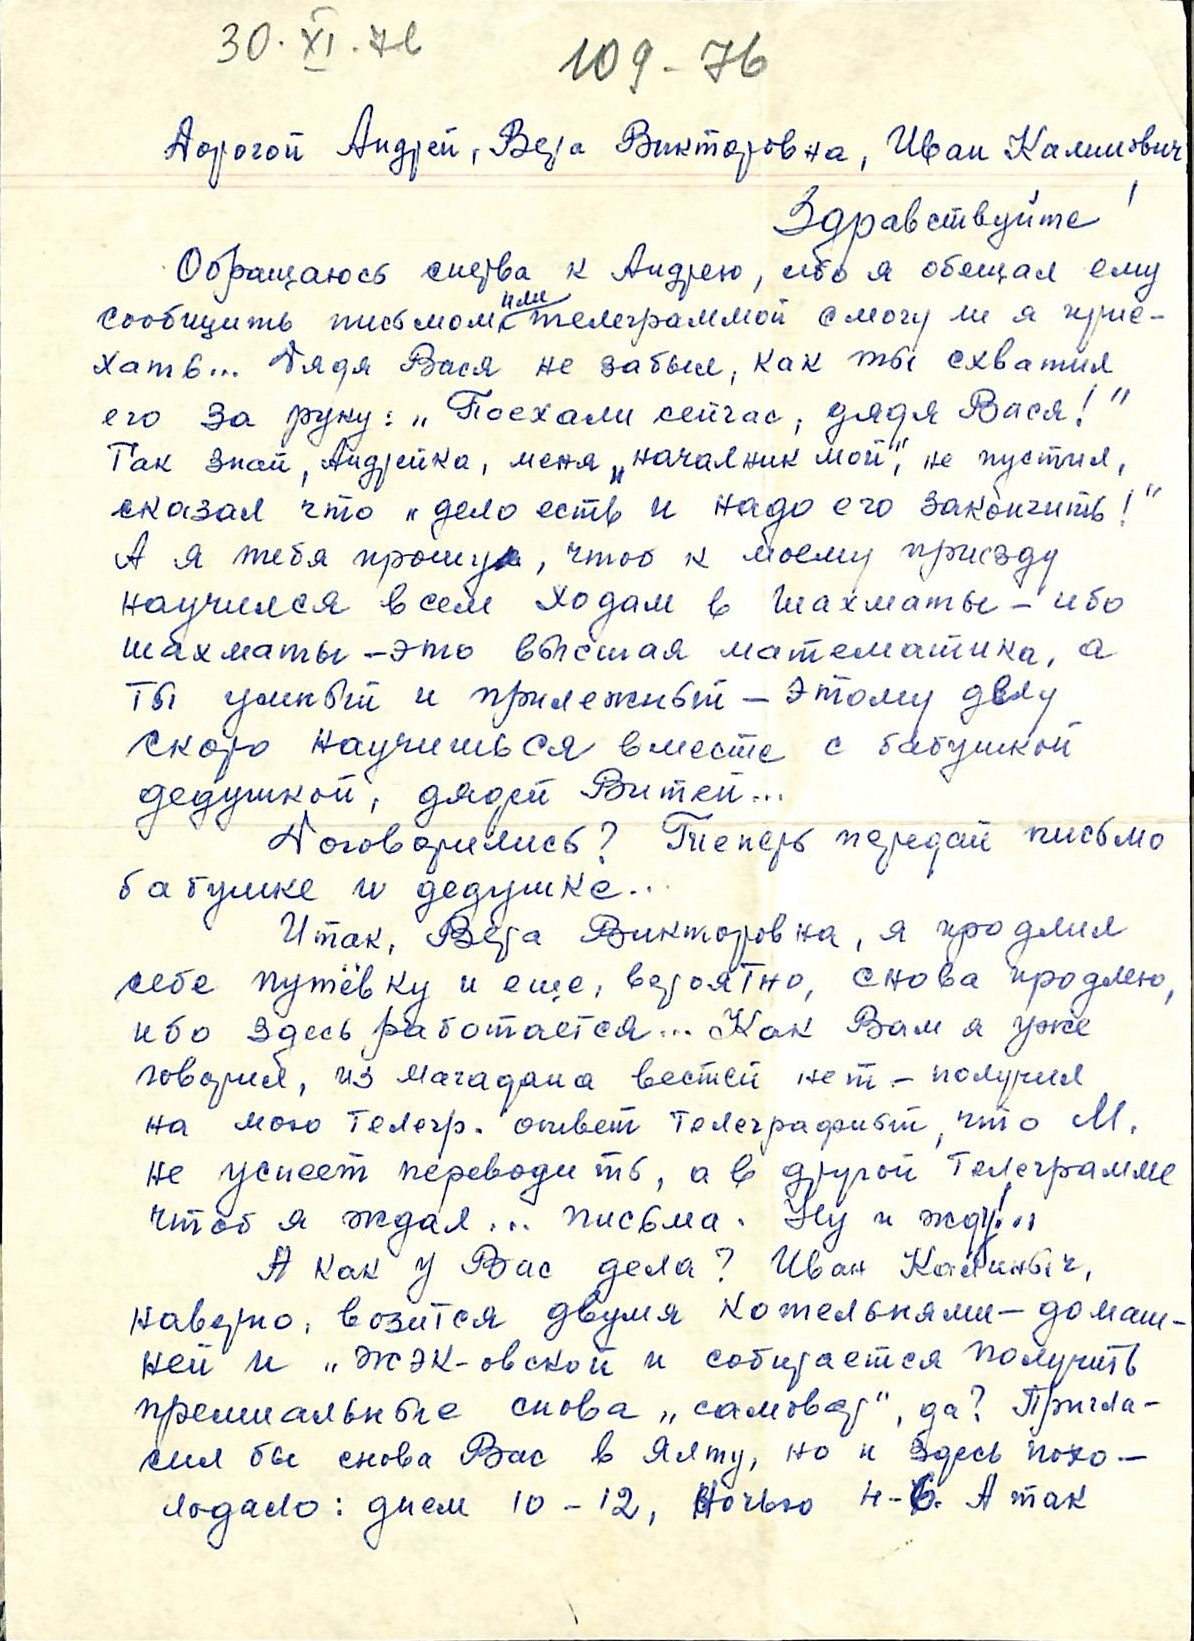 30.XI.76
109-76
Дорогой Андрей, Вера Викторовна, Иван Калинович
Здравствуйте!
Обращаюсь сперва к Андрею, ибо я обещал ему
сообщить письмом или телеграммой смогу ли я прие-
хать... Дядя Вася не забыл, как ты схватил
его за руку: „Поехали сейчас, дядя Вася!"
Так знай, Андрейка, меня „началник мой", не пустил,
сказал что „дело есть и надо его закончить!"
А я тебя прошу, чтоб к моему приезду
научился всем ходам в шахматы - ибо
шахматы - это высшая математика, а
ты умный и прилежный - этому делу
скоро научишься вместе с бабушкой
дедушкой, дядей Витей...
Договорились? Теперь передай письмо
бабушке и дедушке...
Итак, Вера Викторовна, я продлил
себе путёвку и еще, вероятно, снова продлею,
ибо здесь работается... Как Вам я уже
говорил, из Магадана вестей нет - получил
на мою телегр. ответ телеграфный, что М.
не успеет переводить, а в другой телеграмме
чтоб я ждал... письма. Ну и жду!..
А как у Вас дела? Иван Калиныч,
наверно, возится двумя котельнями - домаш-
ней и „ЖЭК-овской и собирается получить
премиальные снова „самовар", да? Пригла-
сил бы снова Вас в Ялту, но и здесь похо-
лодало: днем 10-12, ночью 4-6. А так